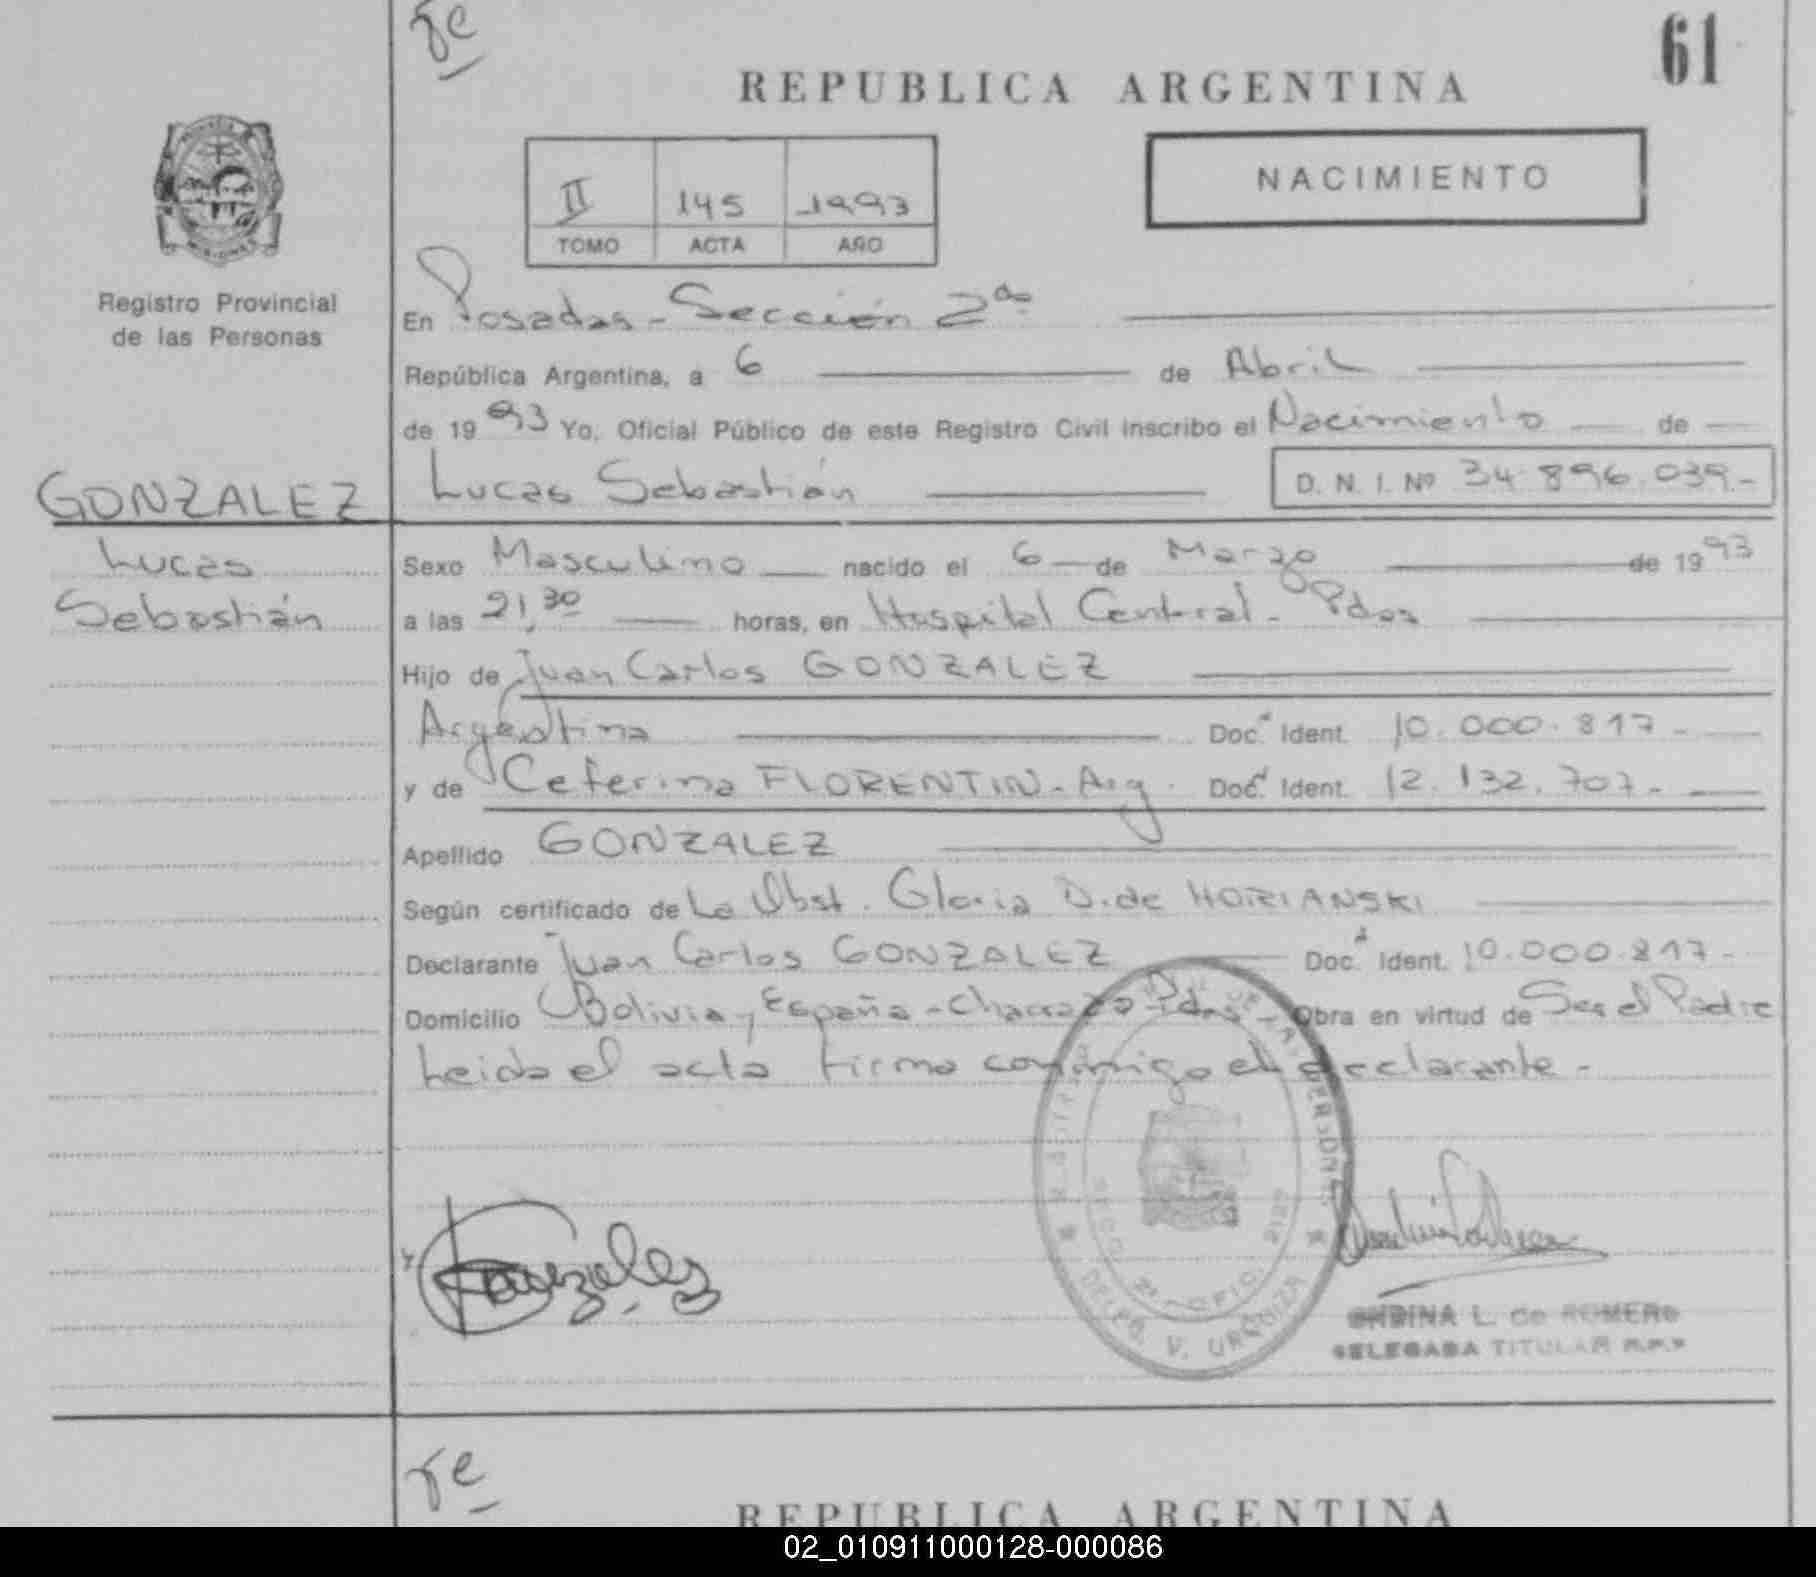 61
REPUBLICA ARGENTINA
NACIMIENTO
II 145 1993
TOMO ACTA AÑO
Registro Provincial
de las Personas
En Posadas - Sección 2da
República Argentina, a 6 de Abril
de 1993 Yo, Oficial Público de este Registro Civil inscribo el Nacimiento de
GONZALEZ Lucas Sebastián D. N. I. Nº 34.896.039.-
Lucas
Sebastián
Sexo Masculino nacido el 6 de Marzo de 1993
a las 21,30 horas, en Hospital Central - Pdas
Hijo de Juan Carlos GONZALEZ
Argentina Doc. Ident. 10.000.817.-
y de Ceferina FLORENTIN - Arg. Doc. Ident. 12.132.707.-
Apellido GONZALEZ
Según certificado de La Obst. Gloria D. de HORIANSKI
Declarante Juan Carlos GONZALEZ Doc. Ident. 10.000.817.-
Domicilio Bolivia y España - Chacra Pdas - Obra en virtud de Ser el Padre
Leida el acta firma conmigo el declarante.-
Gonzalez
DELEG. V. URQUIZA
L. de ROMERO
DELEGADA TITULAR R.P.P.
REPUBLICA ARGENTINA
02_010911000128-000086